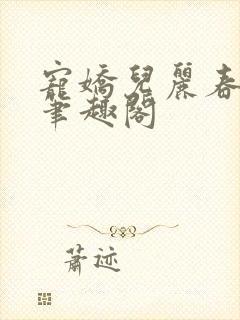 寵嬌兒麗春
筆趣閣
蕭迹